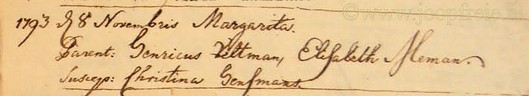 1793 d 8 Novembris Margarita.
Parent: Henricus Veltman, Elisabeth Aleman.
Suscep: Christina Gensmans.